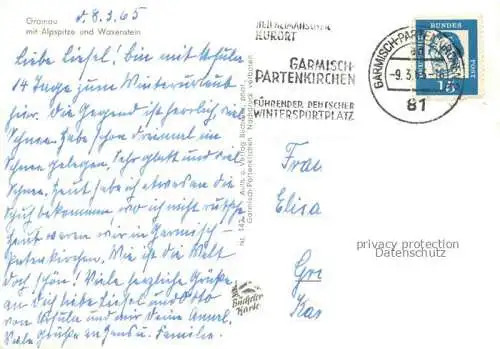 Grainau
mit Alpspitze und Waxenstein
d. 8.3.65
Liebe Liesel! Bin mit Ursula
14 Tage zum Winterurlaub
hier. Die Gegend ist herrlich, viel
Schnee. Habe schon dreimal im
Schnee gelegen. Sehr glatt und viel
Schnee. Heut habe ich etwas an die
Schuh bekommen wo ich nicht rutsche.
Heut waren wir in Garmisch-
Partenkirchen. Wie ist die Welt
doch schön! Viele herzliche Grüße
an Dich liebe Liesel und Otto
von Ursula und mir Deine Annel.
Viele Grüße an Hans u. Familie.
HEILKLIMATISCHER
KURORT
GARMISCH-
PARTENKIRCHEN
FÜHRENDER DEUTSCHER
WINTERSPORTPLATZ
GARMISCH-PARTENKIRCHEN
-9.3.65-18
81
DEUTSCHE
BUNDES
POST
15
Nr. 142
Aufn. u. Verlag:
Garmisch-Partenkirchen. Nachdruck verboten
Frau
Elisa
Gr
Kas
privacy protection
Datenschutz
Karte